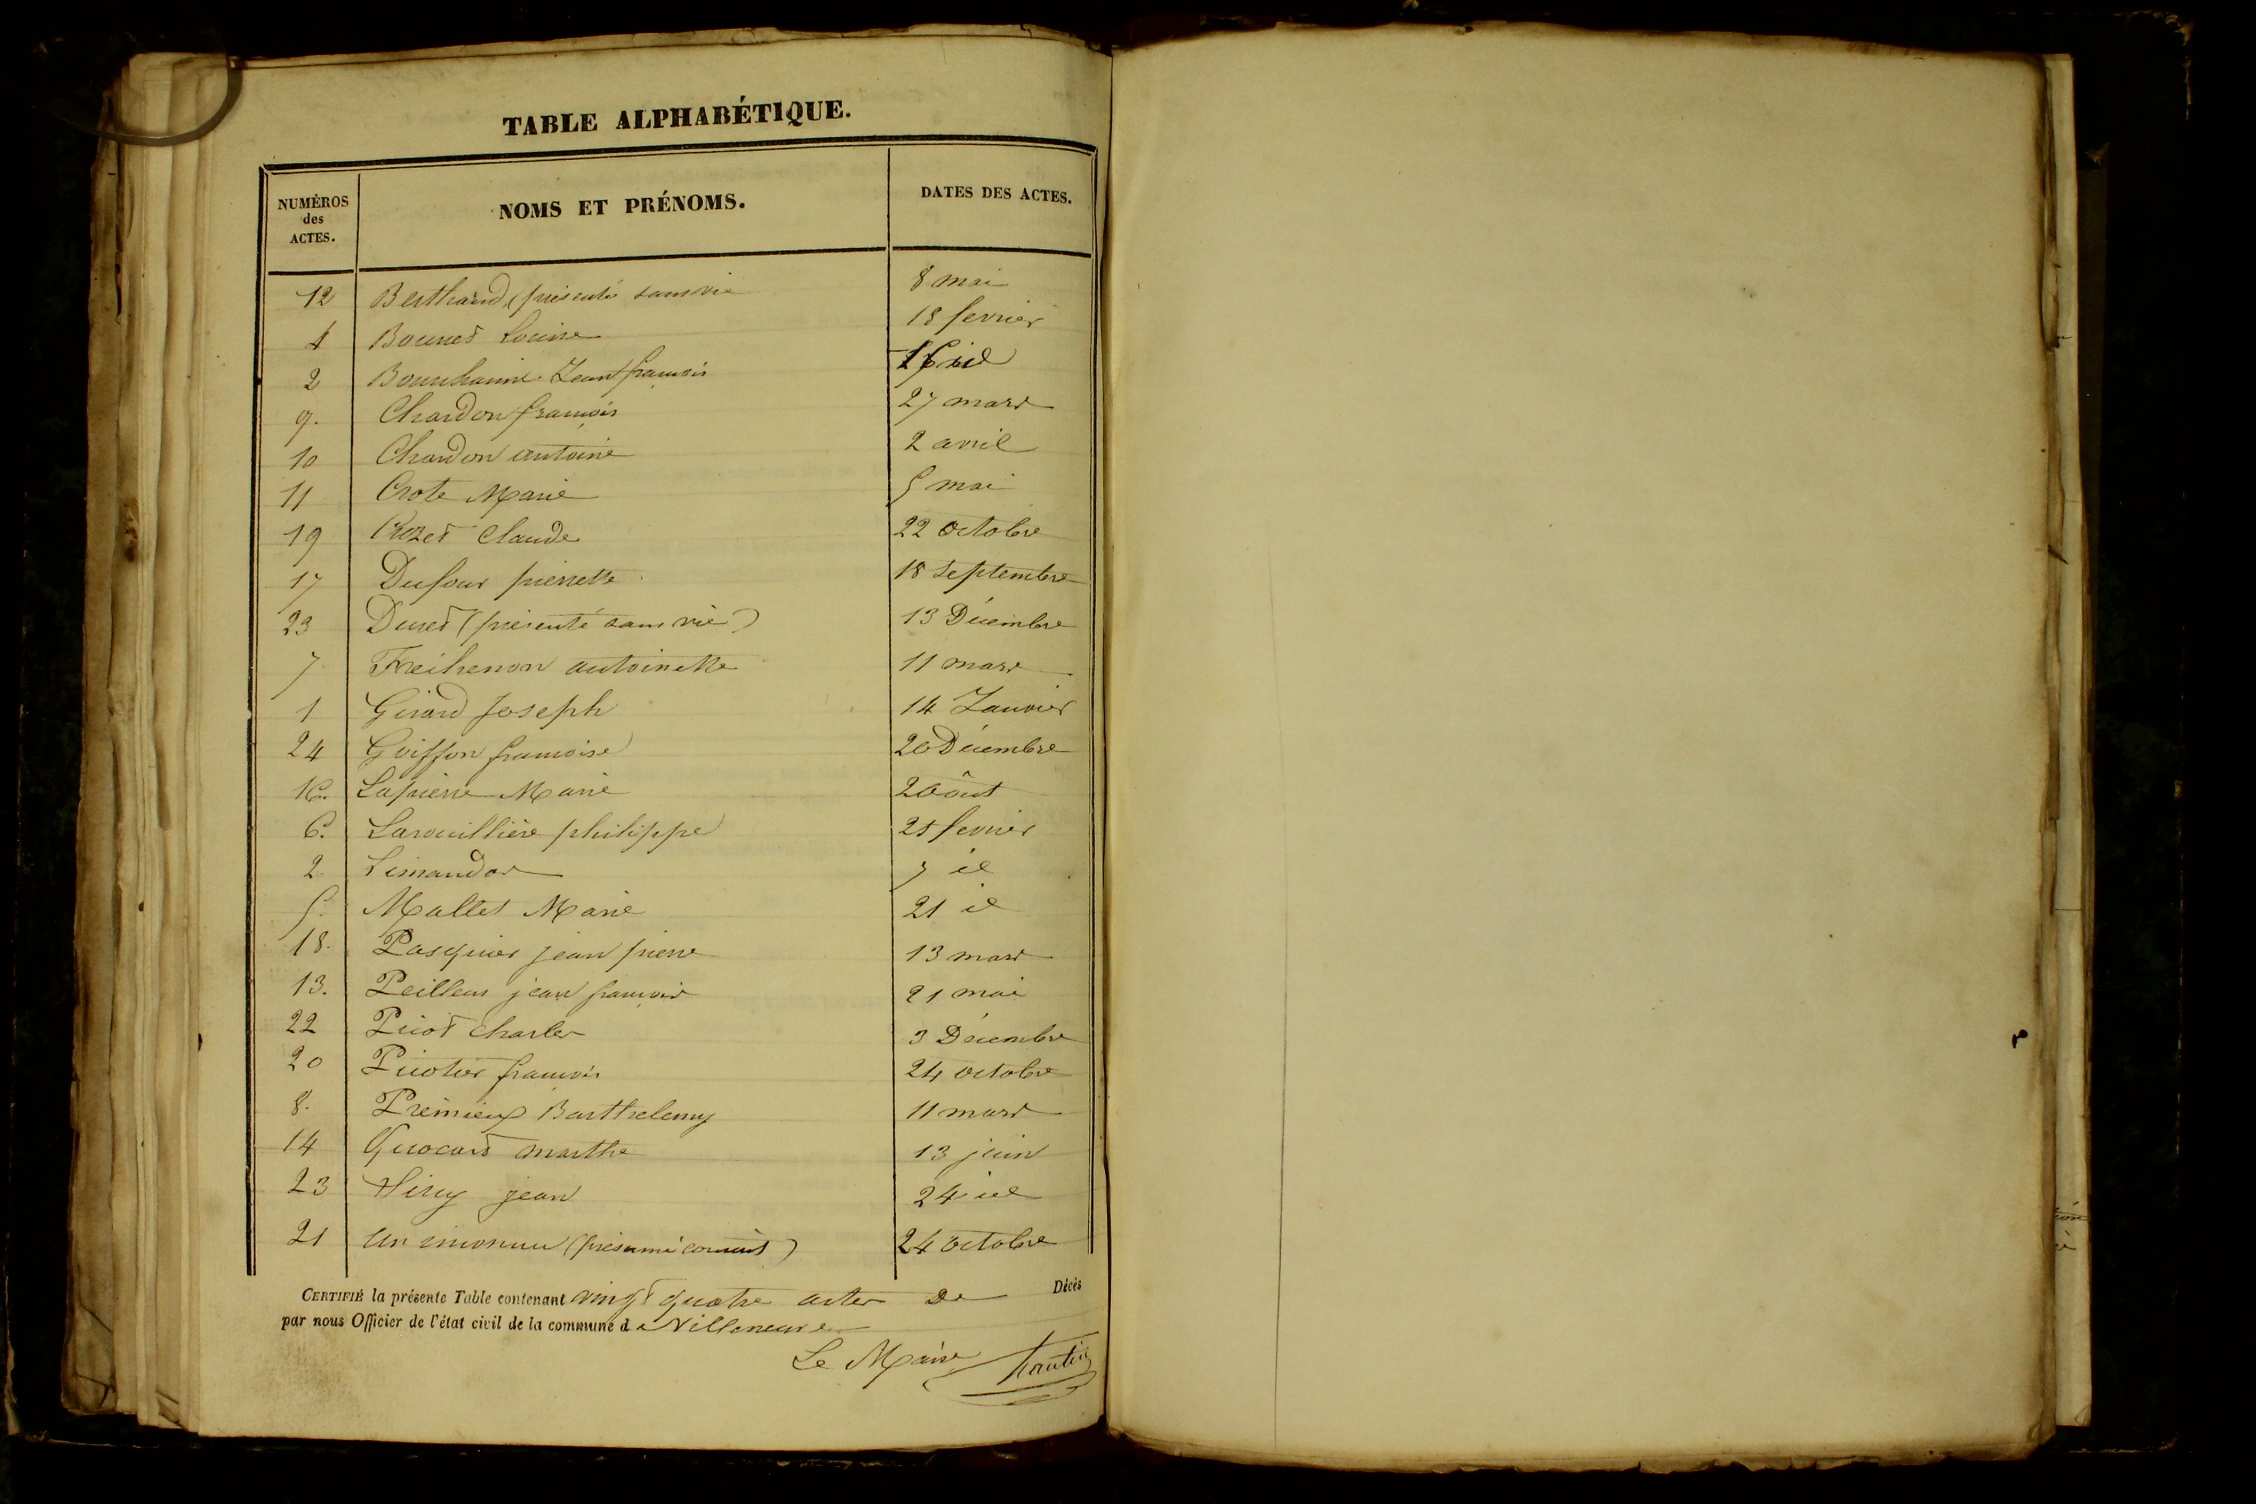 TABLE ALPHABÉTIQUE.
NUMÉROS des ACTES. NOMS ET PRÉNOMS. DATES DES ACTES.
12 Berthand (présenté sans vie 8 mai
4 Bounet Louine 18 fevrier
2 Jean francois id
9. Chardon francois 27 mars
10 Chardon antoine 2 avril
11 Crote Marie 5 mai
19 Crozet Claude 22 octobre
17 Dufour pierrette 18 septembre
23 Duret (présenté sans vie) 13 Décembre
7 antoinette 11 mars
1 Girard Joseph 14 Janvier
24 Goiffon francoise 20 Décembre
16. Lapierre Marie 2 Août
6. Larouillière philippe fevrier
2. Limandas 7 id
5. Mallet Marie 21 id
18. Pasquier jean pierre 13 mars
13. Peilleur jean francois 21 mai
22 Picot Charles 3 Décembre
20 Picotier francois 24 octobre
8. Prémieux Barthelemy 11 mars
14 marthe 13 juin
23 jean 24 id
21 un inconnu (présumé ) 24 octobre
CERTIFIÉ la présente Table contenant vingt quatre actes de Décès
par nous Officier de l'état civil de la commune de Villeneuve
Le Maire